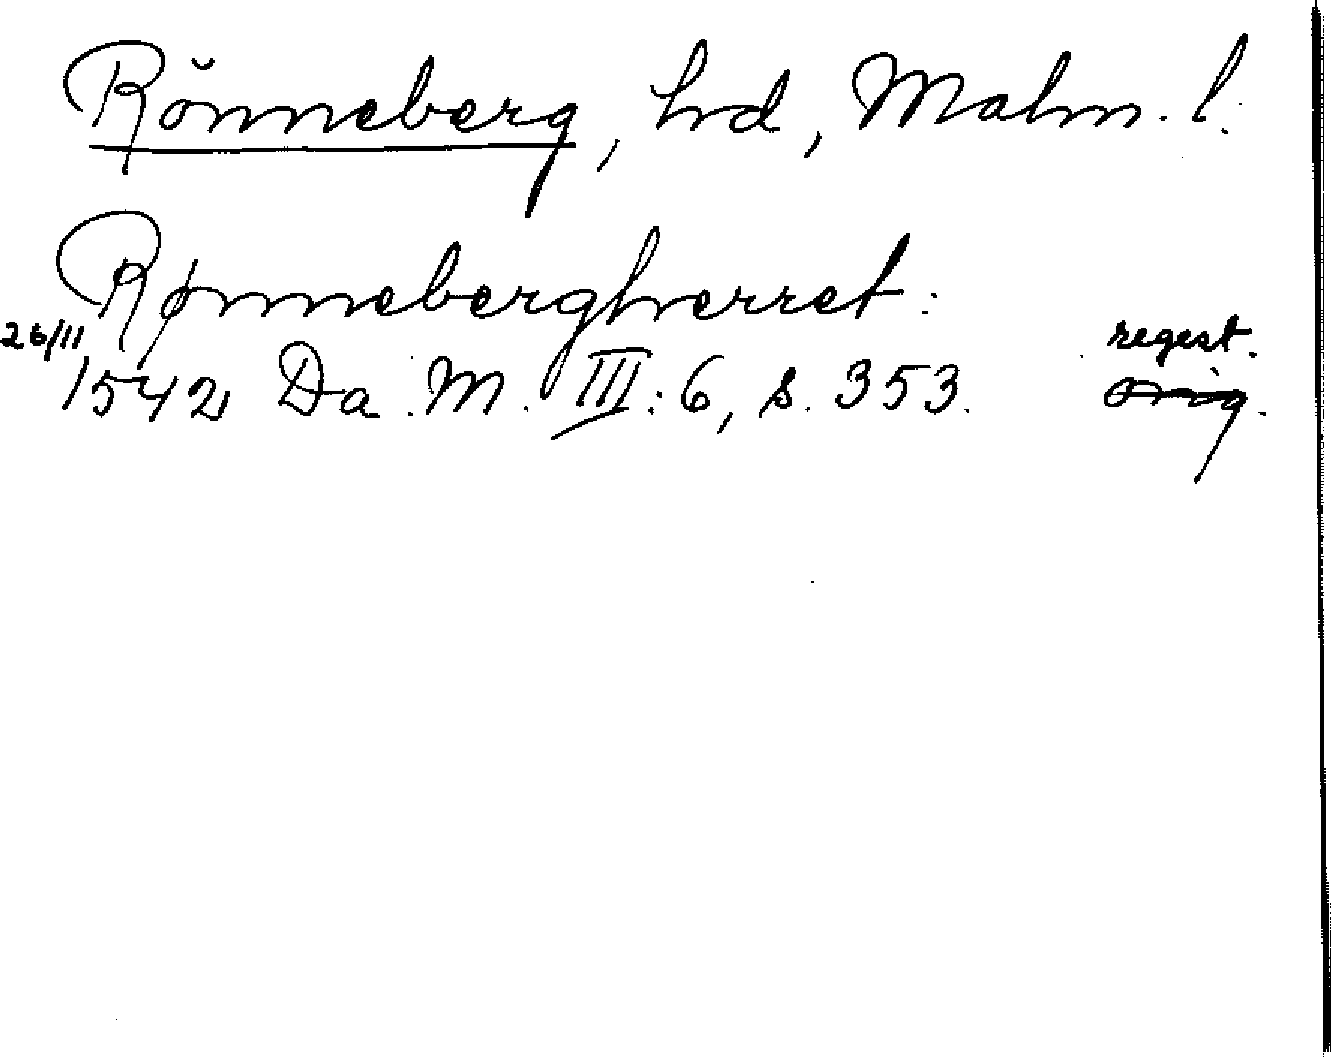 Rönneberg, hd, Malm. l.
Rønnebergherret:
26/11 regest.
1542 Da. M. III: 6, s. 353. orig.